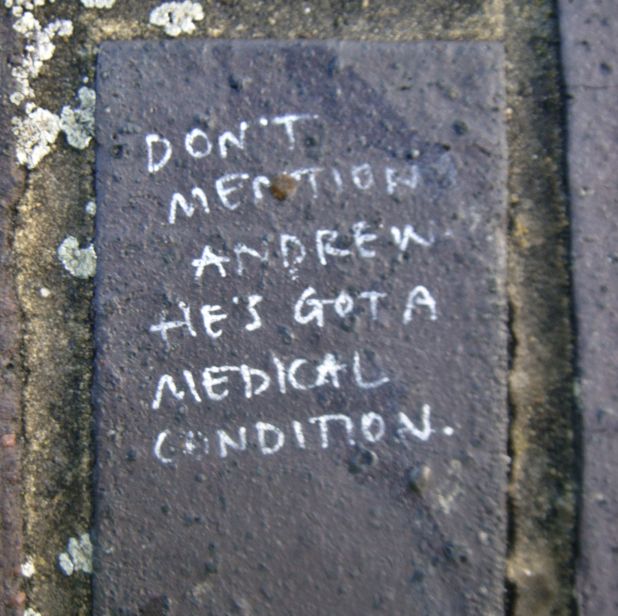 DON'T
MENTION
ANDREW
HE'S GOT A
MEDICAL
CONDITION.